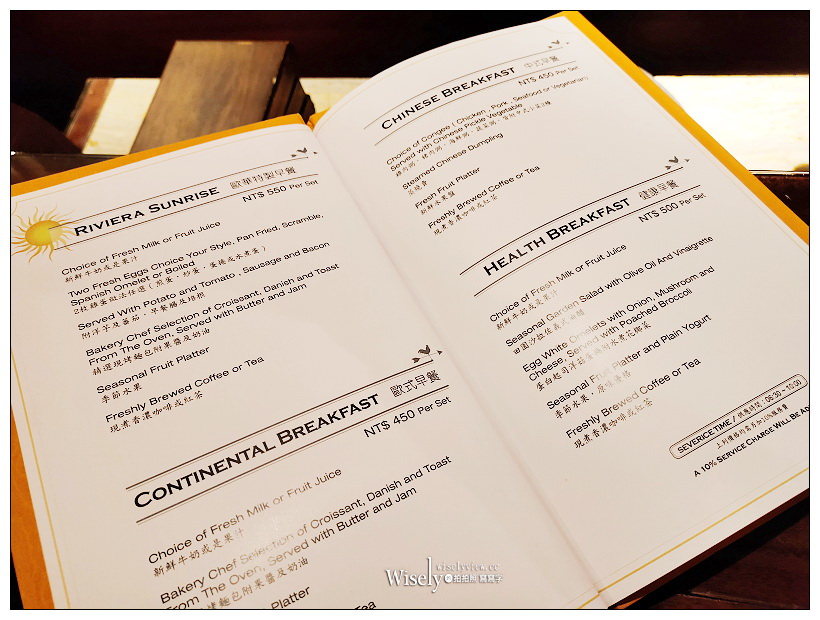 RIVIERA SUNRISE 歐華特製早餐
NT$ 550 Per Set
Choice of Fresh Milk or Fruit Juice
新鮮牛奶或是果汁
Two Fresh Eggs Choice Your Style, Pan Fried, Scramble,
Spanish Omelet or Boiled
2枚雞蛋做法任選(煎蛋,炒蛋,蛋捲或水煮蛋)
Served With Potato and Tomato , Sausage and Bacon
附洋芋及蕃茄,早餐腸及培根
Bakery Chef Selection of Croissant, Danish and Toast
From The Oven, Served with Butter and Jam
精選現烤麵包附果醬及奶油
Seasonal Fruit Platter
季節水果
Freshly Brewed Coffee or Tea
現煮香濃咖啡或紅茶
CONTINENTAL BREAKFAST 歐式早餐
NT$ 450 Per Set
Choice of Fresh Milk or Fruit Juice
新鮮牛奶或是果汁
Bakery Chef Selection of Croissant, Danish and Toast
From The Oven, Served with Butter and Jam
現烤麵包附果醬及奶油
Platter
Tea
CHINESE BREAKFAST 中式早餐
NT$ 450 Per Set
Choice of Congee ( Chicken , Pork , Seafood or Vegetarian)
Served with Chinese Pickle Vegetable
Steamed Chinese Dumpling
蒸燒賣
Fresh Fruit Platter
新鮮水果盤
Freshly Brewed Coffee or Tea
現煮香濃咖啡或紅茶
HEALTH BREAKFAST 健康早餐
NT$ 500 Per Set
Choice of Fresh Milk or Fruit Juice
新鮮牛奶或是果汁
Seasonal Garden Salad with Olive Oil And Vinaigrette
田園沙拉佐義式油醋
Egg White Omelets with Onion, Mushroom and
Cheese, Served with Poached Broccoli
Seasonal Fruit Platter and Plain Yogurt
季節水果,原味優格
Freshly Brewed Coffee or Tea
現煮香濃咖啡或紅茶
SEVERICE TIME / 供應時間:06:30 - 10:00
上列價格均需另加10%服務費
A 10% SERVICE CHARGE WILL BE AD
wiselyview.cc
Wisely 拍拍照 寫寫字